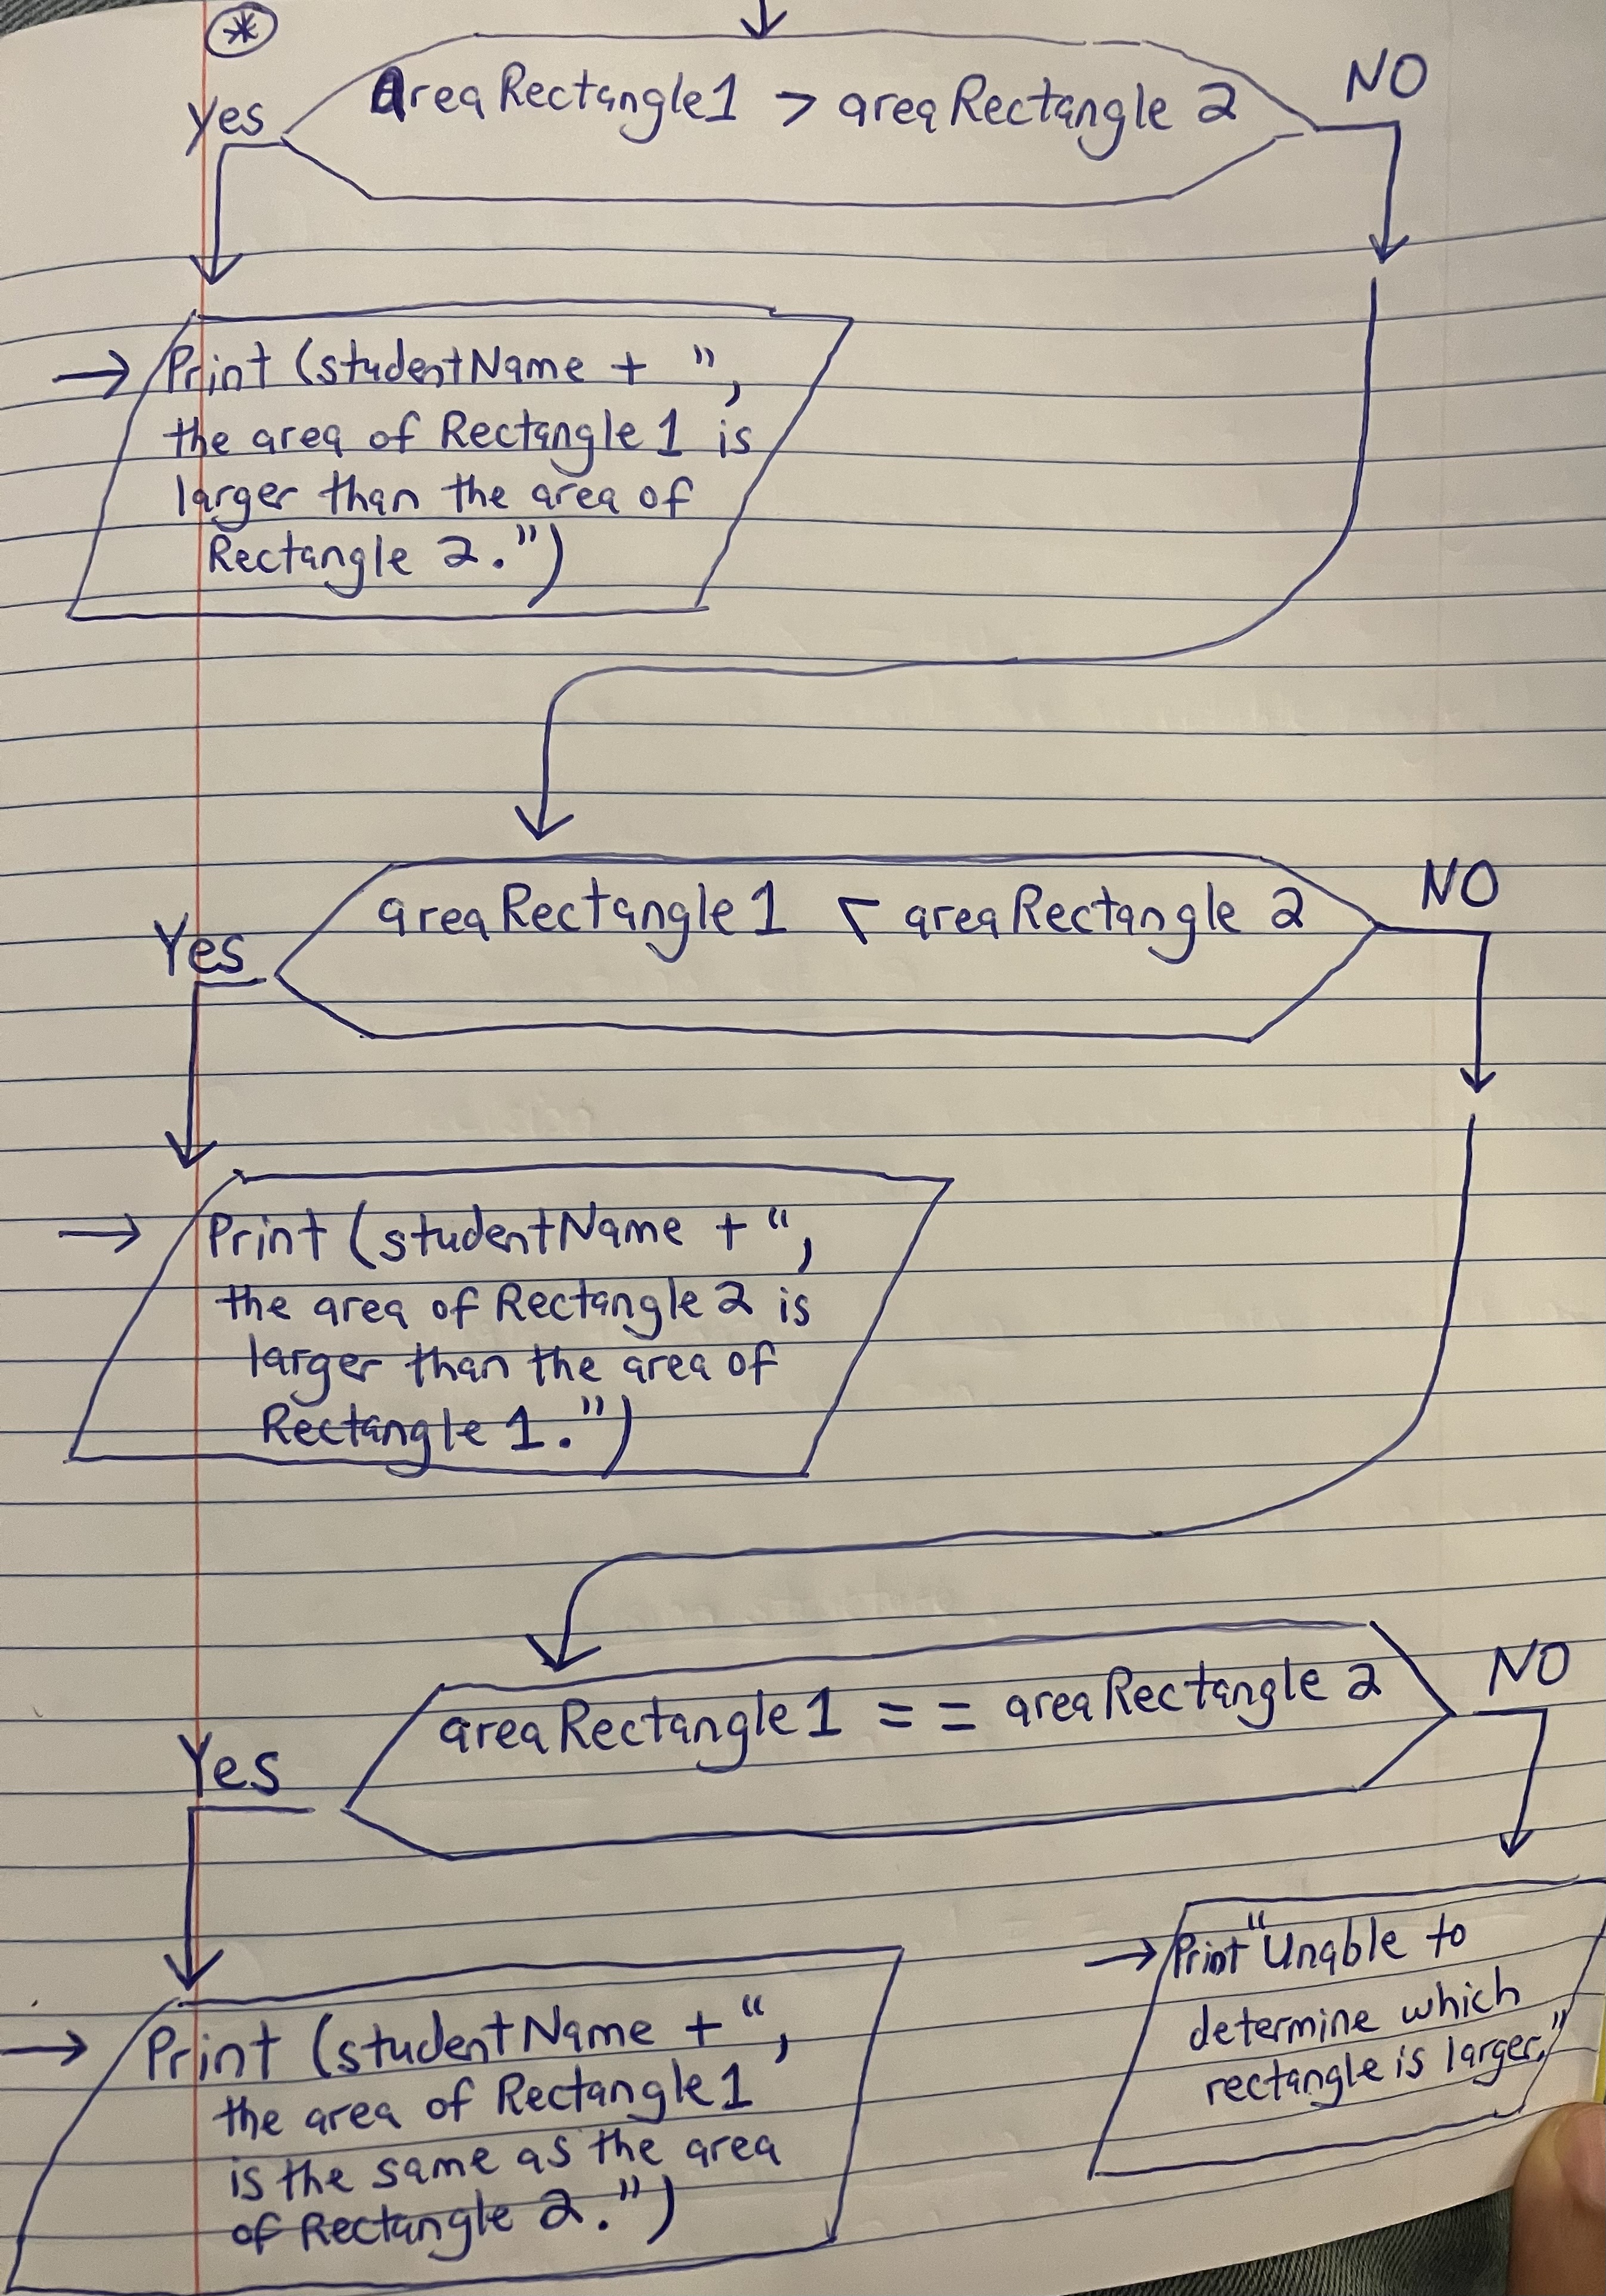 *
areaRectangle1 > areaRectangle 2
Yes
NO
→ Print (studentName + ”,
the area of Rectangle 1 is
larger than the area of
Rectangle 2.”)
areaRectangle 1 < areaRectangle 2
Yes
NO
→ Print (studentName + “,
the area of Rectangle 2 is
larger than the area of
Rectangle 1.”)
areaRectangle 1 = = areaRectangle 2
Yes
NO
→ Print (studentName + “,
the area of Rectangle 1
is the same as the area
of Rectangle 2.”)
→ Print “Unable to
determine which
rectangle is larger.”